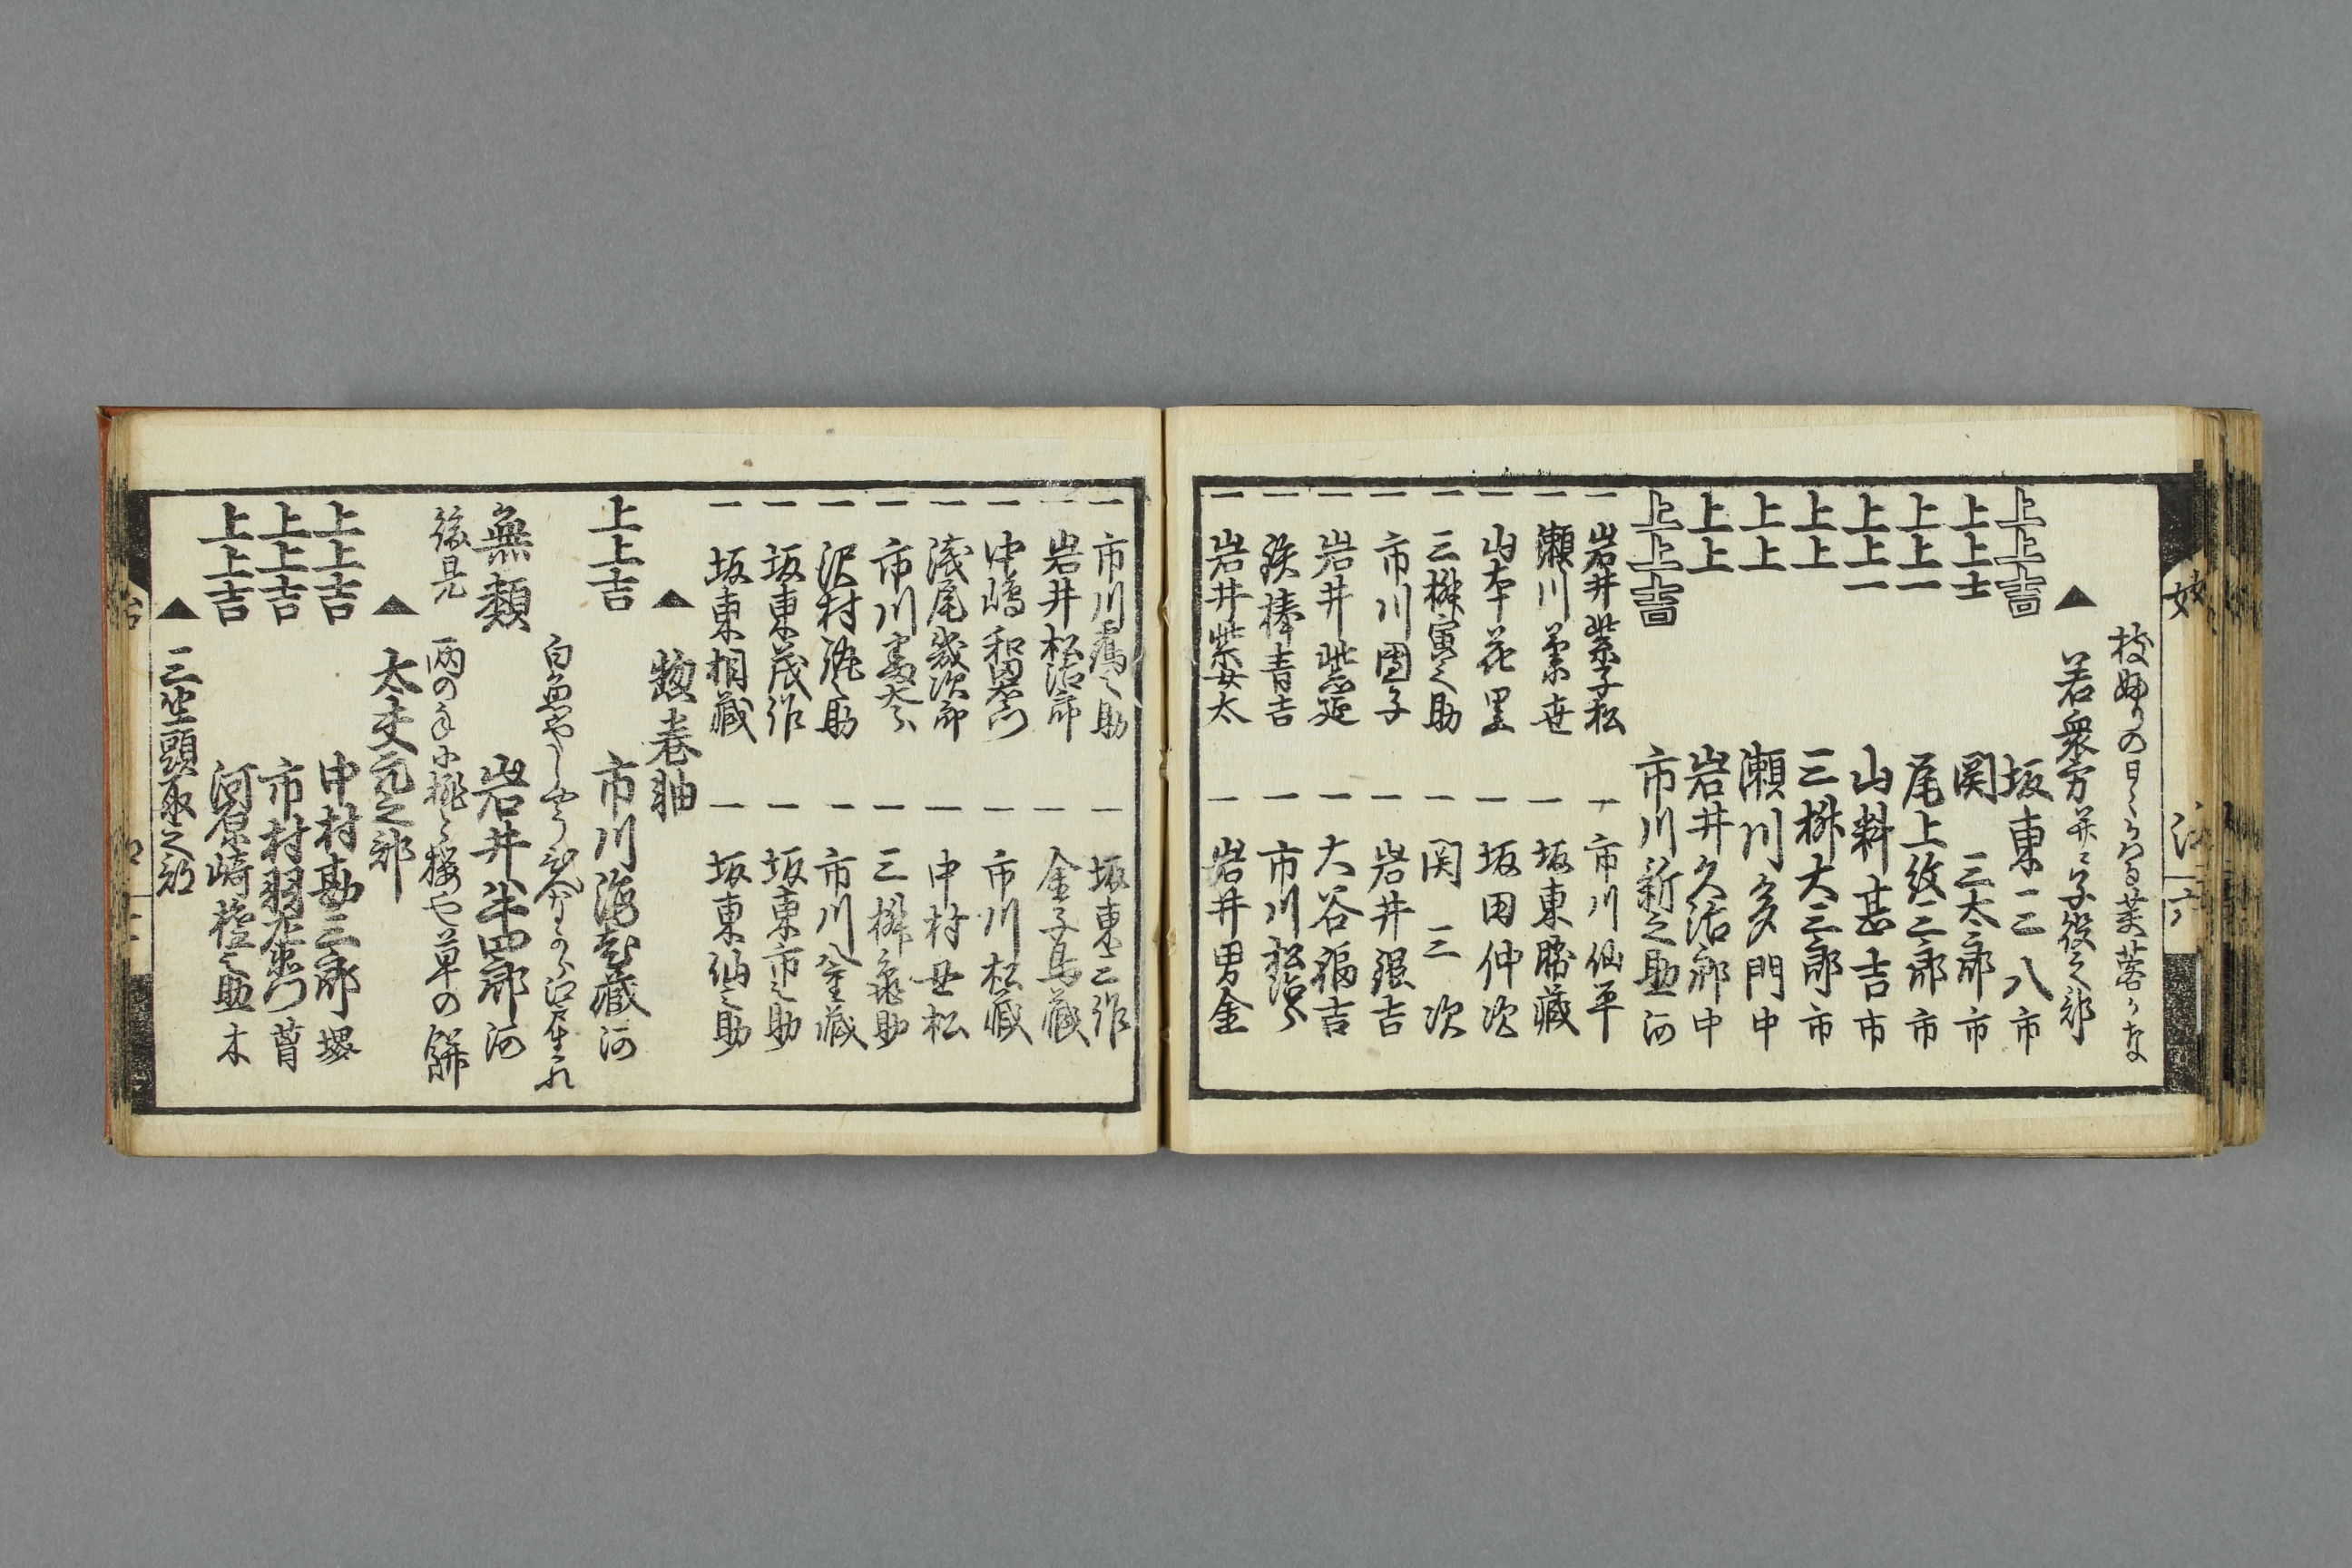 ▲若衆方并ニ子役之部
上上吉 坂東三八 市
上上士 関三太郎 市
上上一 尾上紋三郎 市
上上一 山科甚吉 市
上上 三桝大三郎 市
上上 瀬川多門 中
上上 岩井久治郎 中
上上吉 市川新之助 河
一 岩井紫子松 一 市川仙平
一 瀬川 一 坂東勝蔵
一 山本花里 一 坂田仲次
一 三桝寅之助 一 関三次
一 市川団子 一 岩井銀吉
一 岩井 一 大谷福吉
一 一 市川松治郎
一 岩井紫女太 一 岩井男金
一 市川 之助 一 坂東三作
一 岩井松治郎 一 金子馬蔵
一 中嶋和田右衛門 一 市川松蔵
一 浅尾幾次郎 一 中村世松
一 市川 一 三桝亀助
一 沢村 之助 一 市川八重蔵
一 坂東茂作 一 坂東市之助
一 坂東桐蔵 一 坂東仙之助
▲惣巻軸
上上吉 市川海老蔵 河
無類 岩井半四郎 河
後見 両の手に桃と桜や草の餅
▲太夫元之部
上上吉 中村勘三郎 堺
上上吉 市村羽左衛門 葺
上上吉 河原崎権之助 木
▲三座頭取之部